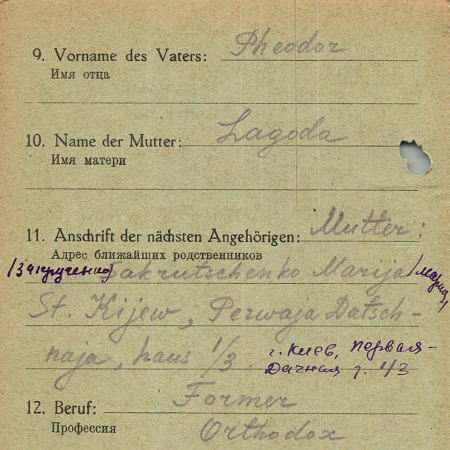 9. Vorname des Vaters: Pheodor
Имя отца
10. Name der Mutter: Lagoda
Имя матери
11. Anschrift der nächsten Angehörigen: Mutter:
Адрес ближайших родственников
/Закрученко/ Sakrutschenko Marija /Мария/
St. Kijew, Perwaja Datsch-
naja, haus 1/3. г. Киев, Первая-
Дачная д. 1/3
12. Beruf: Former
Профессия
Orthodox